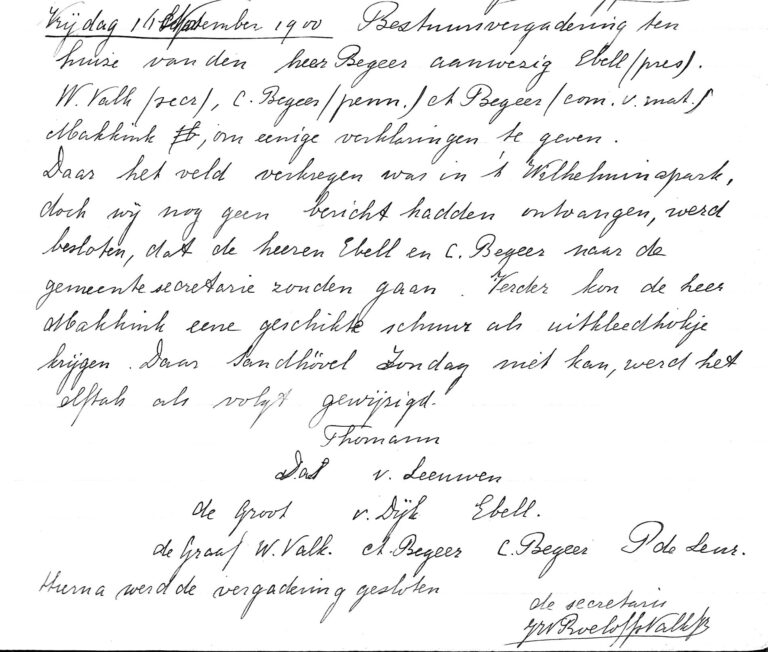 Vrijdag 14 September 1900 Bestuursvergadering ten
huize van den heer Begeer aanwezig Ebell (pres).
W. Valk (secr), C. Begeer (penn.) A Begeer (com. v. mat.)
Makkink, om eenige verklaringen te geven.
Daar het veld verkregen was in 't Wilhelminapark,
doch wij nog geen bericht hadden ontvangen, werd
besloten, dat de heeren Ebell en C. Begeer naar de
gemeentesecretarie zouden gaan. Verder kon de heer
Makkink eene geschikte schuur als uitkleedhokje
krijgen. Daar Sandhövel Zondag niet kan, werd het
elftal als volgt gewijzigd.
Thomann
v. Leeuwen
de Groot v. Dijk Ebell.
de Graaf W. Valk. A. Begeer C. Begeer P de Leur.
Hierna werd de vergadering gesloten
de secretaris
Roeloffs Valk